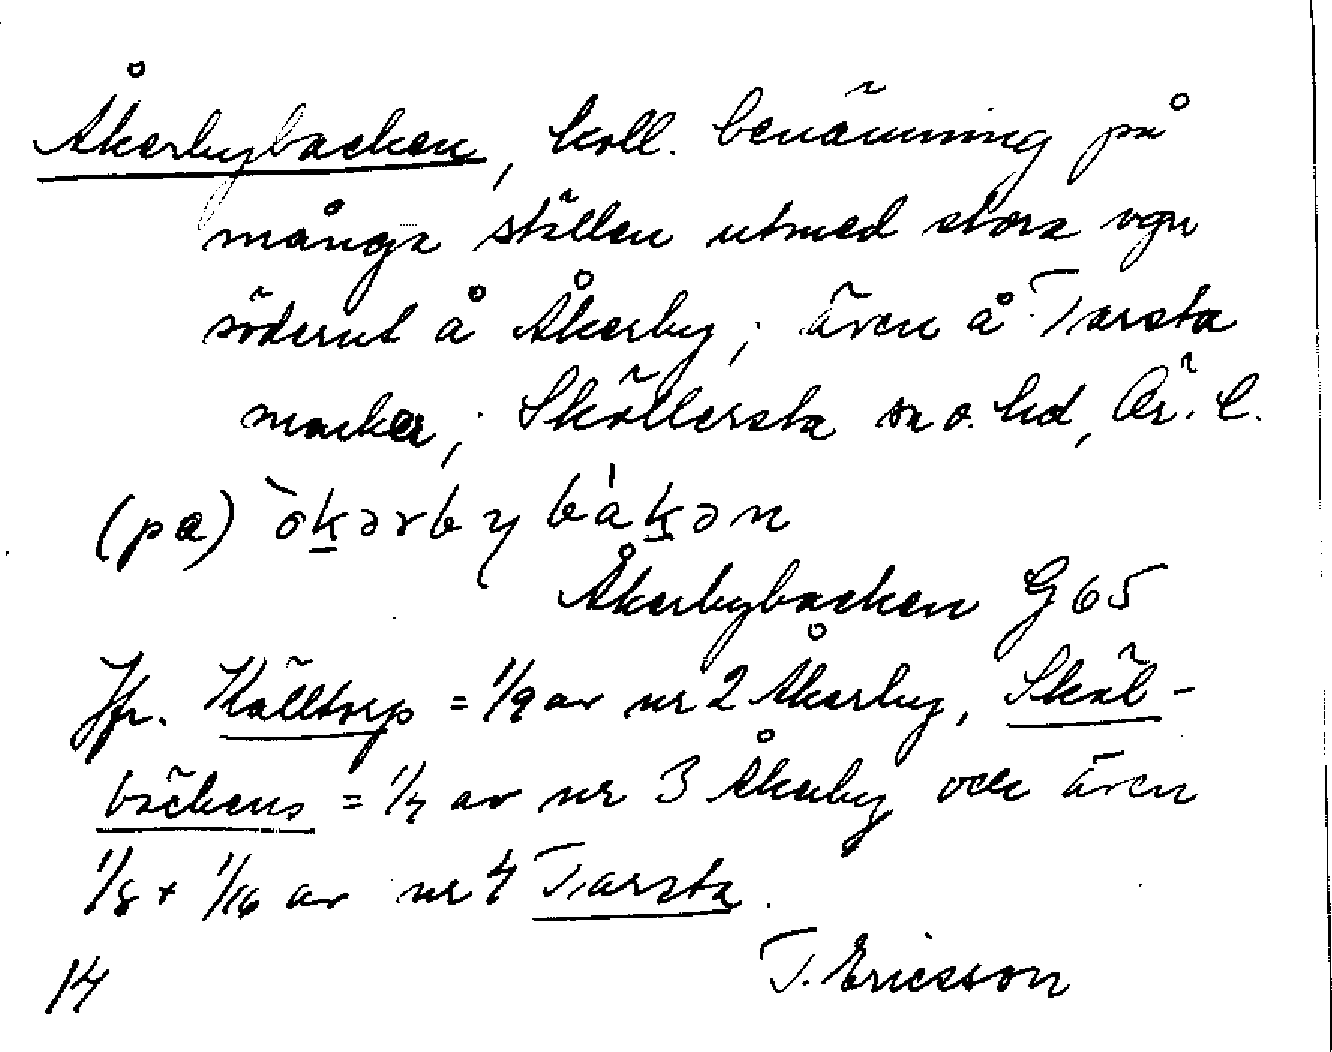 Åkerbybacken, koll. benämning på
många ställen utmed stora vägen
söderut å Åkerby; även å Tarsta
marker; Sköllersta sn o. hd, Ör. l.
(pa) òkərbybákən
Åkerbybacken G 65
Jfr. Källtorp = 1/9 av nr 2 Åkerby, Sköl-
bäckens = 1/4 av nr 3 Åkerby och även
1/8 + 1/16 av nr 4 Tarsta.
14 T. Ericsson